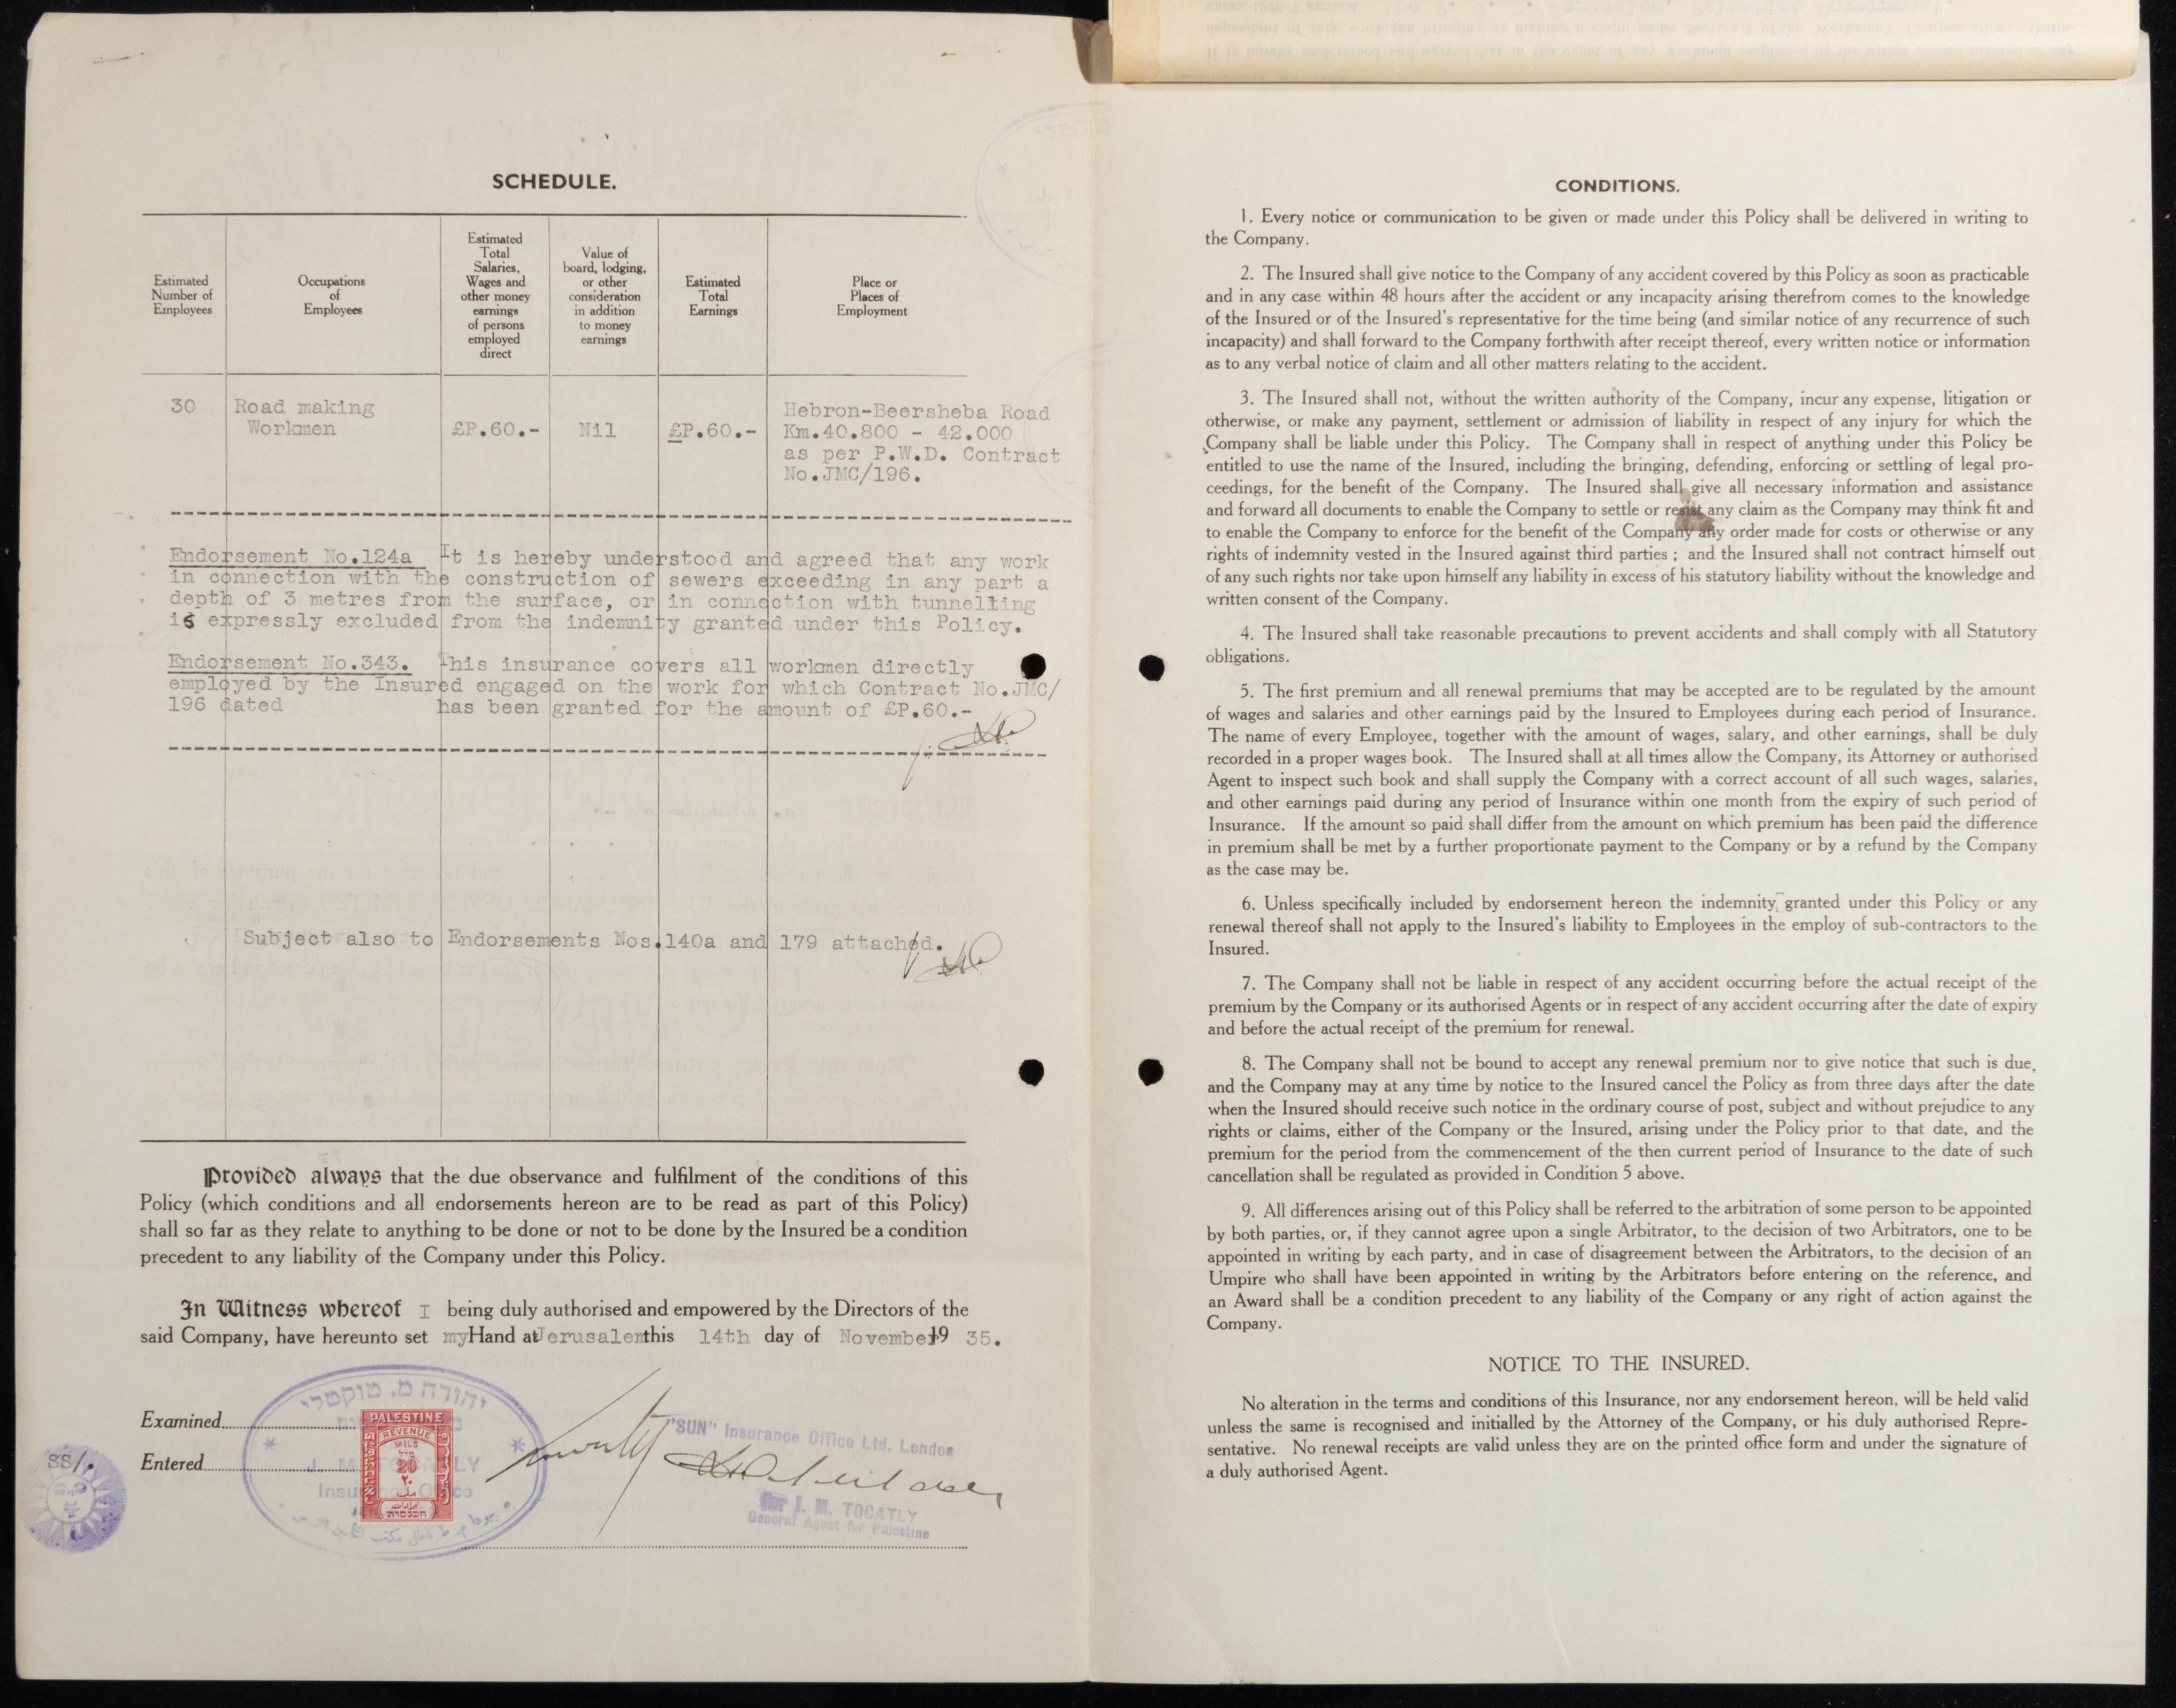 SCHEDULE.
Estimated
Number of
Employees
Occupations
of
Employees
Estimated
Total
Salaries,
Wages and
other money
earnings
of persons
employed
direct
Value of
board, lodging,
or other
consideration
in addition
to money
earnings
Estimated
Total
Earnings
Place or
Places of
Employment
30
Road making
Workmen
£P.60.-
Nil
£P.60.-
Hebron-Beersheba Road
Km.40.800 - 42.000
as per P.W.D. Contract
No.JMC/196.
Endorsement No.124a It is hereby understood and agreed that any work
in connection with the construction of sewers exceeding in any part a
depth of 3 metres from the surface, or in connection with tunnelling
is expressly excluded from the indemnity granted under this Policy.
Endorsement No.343. This insurance covers all workmen directly
employed by the Insured engaged on the work for which Contract No.JMC/
196 dated has been granted for the amount of £P.60.-
Subject also to Endorsements Nos.140a and 179 attached.
Provided always that the due observance and fulfilment of the conditions of this
Policy (which conditions and all endorsements hereon are to be read as part of this Policy)
shall so far as they relate to anything to be done or not to be done by the Insured be a condition
precedent to any liability of the Company under this Policy.
In Witness whereof I being duly authorised and empowered by the Directors of the
said Company, have hereunto set my Hand at Jerusalem this 14th day of November 19 35.
Examined
Entered
SS/.
יהודה מ. טוקטלי
J. M. TOCATLY
Insurance Office
PALESTINE
REVENUE
MILS
מיל
20
٢٠
مل
"SUN" Insurance Office Ltd. London
for J. M. TOCATLY
General Agent for Palestine
CONDITIONS.
1. Every notice or communication to be given or made under this Policy shall be delivered in writing to
the Company.
2. The Insured shall give notice to the Company of any accident covered by this Policy as soon as practicable
and in any case within 48 hours after the accident or any incapacity arising therefrom comes to the knowledge
of the Insured or of the Insured's representative for the time being (and similar notice of any recurrence of such
incapacity) and shall forward to the Company forthwith after receipt thereof, every written notice or information
as to any verbal notice of claim and all other matters relating to the accident.
3. The Insured shall not, without the written authority of the Company, incur any expense, litigation or
otherwise, or make any payment, settlement or admission of liability in respect of any injury for which the
Company shall be liable under this Policy. The Company shall in respect of anything under this Policy be
entitled to use the name of the Insured, including the bringing, defending, enforcing or settling of legal pro-
ceedings, for the benefit of the Company. The Insured shall give all necessary information and assistance
and forward all documents to enable the Company to settle or resist any claim as the Company may think fit and
to enable the Company to enforce for the benefit of the Company any order made for costs or otherwise or any
rights of indemnity vested in the Insured against third parties ; and the Insured shall not contract himself out
of any such rights nor take upon himself any liability in excess of his statutory liability without the knowledge and
written consent of the Company.
4. The Insured shall take reasonable precautions to prevent accidents and shall comply with all Statutory
obligations.
5. The first premium and all renewal premiums that may be accepted are to be regulated by the amount
of wages and salaries and other earnings paid by the Insured to Employees during each period of Insurance.
The name of every Employee, together with the amount of wages, salary, and other earnings, shall be duly
recorded in a proper wages book. The Insured shall at all times allow the Company, its Attorney or authorised
Agent to inspect such book and shall supply the Company with a correct account of all such wages, salaries,
and other earnings paid during any period of Insurance within one month from the expiry of such period of
Insurance. If the amount so paid shall differ from the amount on which premium has been paid the difference
in premium shall be met by a further proportionate payment to the Company or by a refund by the Company
as the case may be.
6. Unless specifically included by endorsement hereon the indemnity granted under this Policy or any
renewal thereof shall not apply to the Insured's liability to Employees in the employ of sub-contractors to the
Insured.
7. The Company shall not be liable in respect of any accident occurring before the actual receipt of the
premium by the Company or its authorised Agents or in respect of any accident occurring after the date of expiry
and before the actual receipt of the premium for renewal.
8. The Company shall not be bound to accept any renewal premium nor to give notice that such is due,
and the Company may at any time by notice to the Insured cancel the Policy as from three days after the date
when the Insured should receive such notice in the ordinary course of post, subject and without prejudice to any
rights or claims, either of the Company or the Insured, arising under the Policy prior to that date, and the
premium for the period from the commencement of the then current period of Insurance to the date of such
cancellation shall be regulated as provided in Condition 5 above.
9. All differences arising out of this Policy shall be referred to the arbitration of some person to be appointed
by both parties, or, if they cannot agree upon a single Arbitrator, to the decision of two Arbitrators, one to be
appointed in writing by each party, and in case of disagreement between the Arbitrators, to the decision of an
Umpire who shall have been appointed in writing by the Arbitrators before entering on the reference, and
an Award shall be a condition precedent to any liability of the Company or any right of action against the
Company.
NOTICE TO THE INSURED.
No alteration in the terms and conditions of this Insurance, nor any endorsement hereon, will be held valid
unless the same is recognised and initialled by the Attorney of the Company, or his duly authorised Repre-
sentative. No renewal receipts are valid unless they are on the printed office form and under the signature of
a duly authorised Agent.